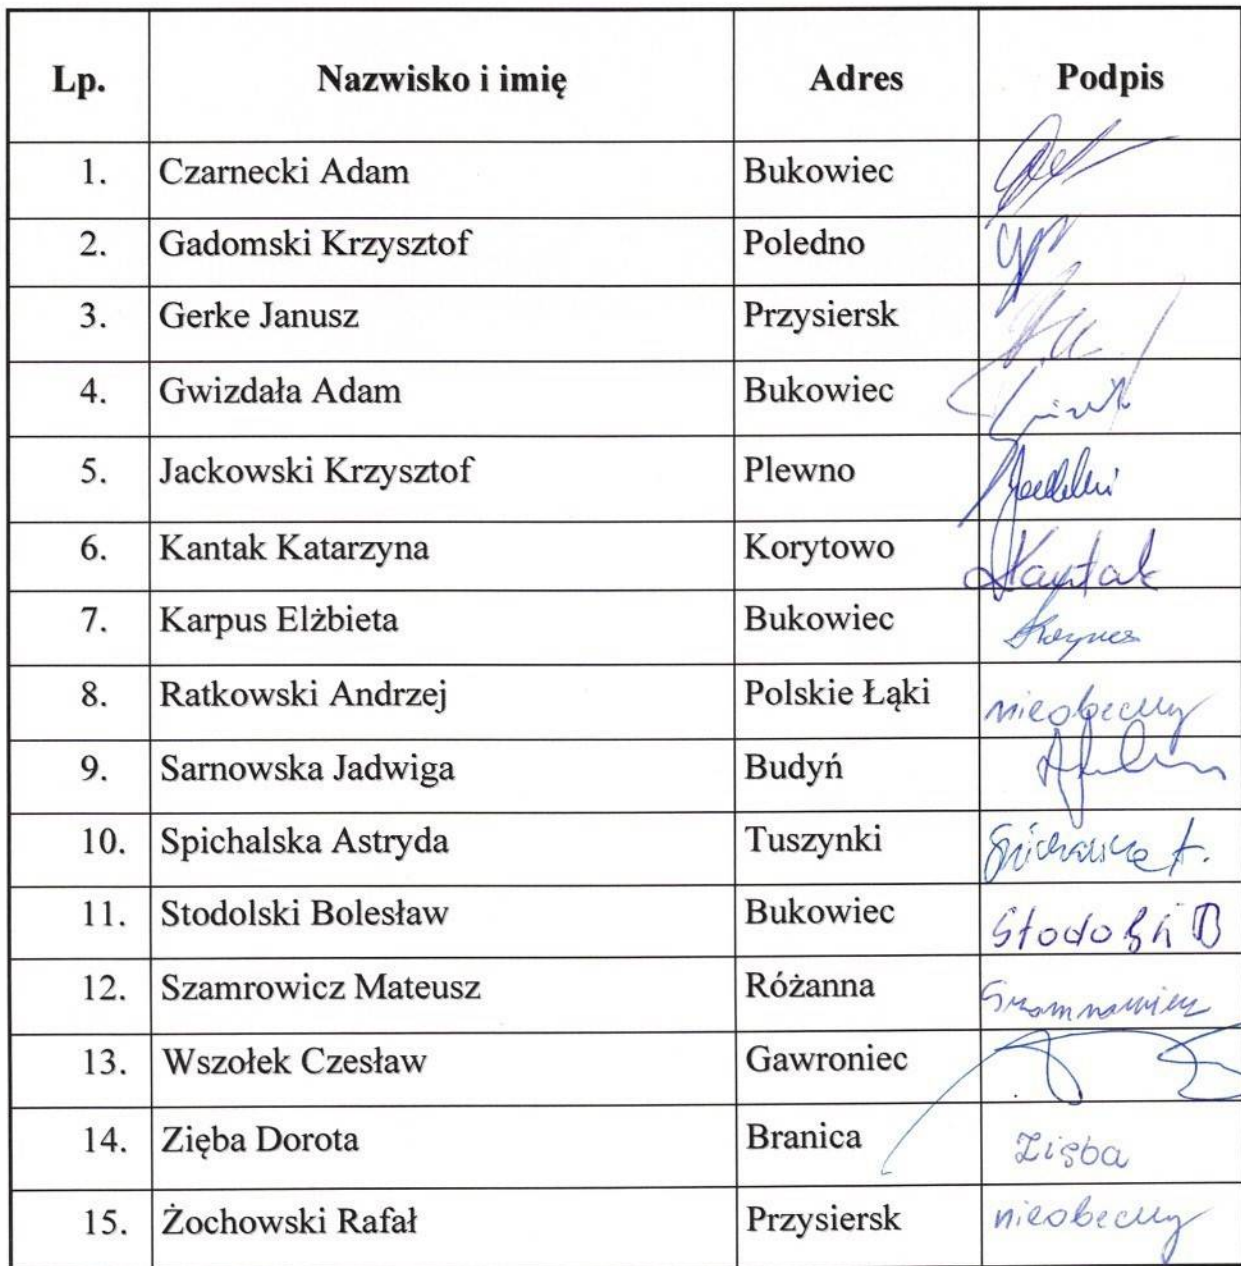 Lp. Nazwisko i imię Adres Podpis
1. Czarnecki Adam Bukowiec
2. Gadomski Krzysztof Poledno
3. Gerke Janusz Przysiersk
4. Gwizdała Adam Bukowiec
5. Jackowski Krzysztof Plewno
6. Kantak Katarzyna Korytowo Kantak
7. Karpus Elżbieta Bukowiec
8. Ratkowski Andrzej Polskie Łąki nieobecny
9. Sarnowska Jadwiga Budyń
10. Spichalska Astryda Tuszynki
11. Stodolski Bolesław Bukowiec
12. Szamrowicz Mateusz Różanna
13. Wszołek Czesław Gawroniec
14. Zięba Dorota Branica Zięba
15. Żochowski Rafał Przysiersk nieobecny